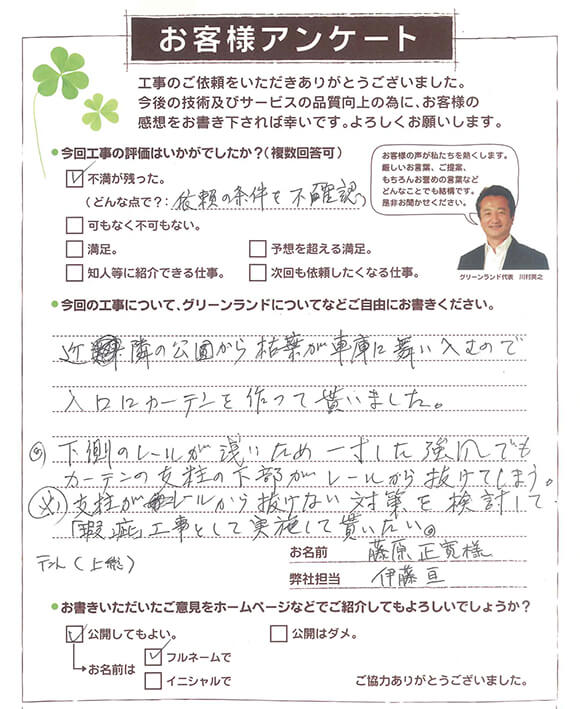 お客様アンケート
工事のご依頼をいただきありがとうございました。
今後の技術及びサービスの品質向上の為に、お客様の
感想をお書き下されば幸いです。よろしくお願いします。
●今回工事の評価はいかがでしたか?(複数回答可)
不満が残った。
(どんな点で?: 依頼の条件を不確認)
可もなく不可もない。
満足。
予想を超える満足。
知人等に紹介できる仕事。
次回も依頼したくなる仕事。
お客様の声が私たちを熱くします。
厳しいお言葉、ご提案、
もちろんお誉めの言葉など
どんなことでも結構です。
是非お聞かせください。
グリーンランド代表 川村真之
●今回の工事について、グリーンランドについてなどご自由にお書きください。
近隣の公園から枯葉が車庫に舞い入むので
入口にカーテンを作って貰いました。
下側のレールが浅いため一寸した強風でも
カーテンの支柱の下部がレールから抜けてしまう。
支柱がレールから抜けない対策を検討して
「瑕疵」工事として実施して貰いたい。
テント(上総)
お名前 藤原正寛様
弊社担当 伊藤亘
●お書きいただいたご意見をホームページなどでご紹介してもよろしいでしょうか?
公開してもよい。
公開はダメ。
お名前は
フルネームで
イニシャルで
ご協力ありがとうございました。